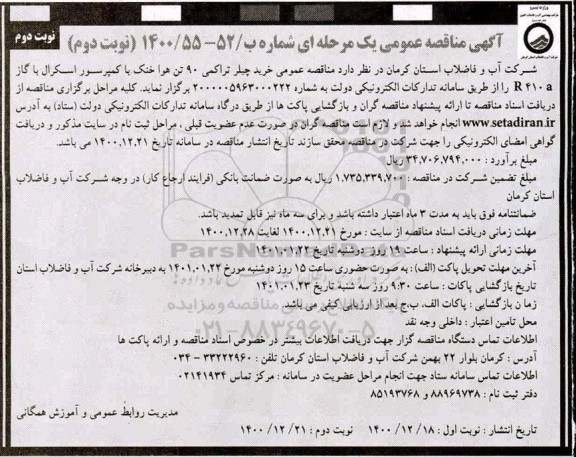 وزارت نیرو
نوبت دوم
نوبت دوم
آگهی مناقصه عمومی یک مرحله ای شماره ب/۵۲- ۵۵/ ۱۴۰۰ (نوبت دوم)
شرکت آب و فاضلاب استان کرمان در نظر دارد مناقصه عمومی خرید چیلر تراکمی ۹۰ تن هوا خنک با کمپرسور اسکرال با گاز
R ۴۱۰ a را از طریق سامانه تدارکات الکترونیکی دولت به شماره ۲۰۰۰۰۰۵۹۶۳۰۰۰۲۲۲ برگزار نماید. کلیه مراحل برگزاری مناقصه از
دریافت اسناد مناقصه تا ارائه پیشنهاد مناقصه گران و بازگشایی پاکت ها از طریق درگاه سامانه تدارکات الکترونیکی دولت (ستاد) به آدرس
www.setadiran.ir انجام خواهد شد و لازم است مناقصه گران در صورت عدم عضویت قبلی ، مراحل ثبت نام در سایت مذکور و دریافت
گواهی امضای الکترونیکی را جهت شرکت در مناقصه محقق سازند تاریخ انتشار مناقصه در سامانه تاریخ ۱۴۰۰,۱۲,۲۱ می باشد.
مبلغ برآورد : ۳۴,۷۰۶,۷۹۴,۰۰۰ ریال
مبلغ تضمین شرکت در مناقصه : ۱,۷۳۵,۳۳۹,۷۰۰ ریال به صورت ضمانت بانکی (فرایند ارجاع کار) در وجه شرکت آب و فاضلاب
استان کرمان
ضمانتنامه فوق باید به مدت ۳ ماه اعتبار داشته باشد و برای سه ماه نیز قابل تمدید باشد.
مهلت زمانی دریافت اسناد مناقصه از سایت : مورخ ۱۴۰۰,۱۲,۲۱ لغایت ۱۴۰۰,۱۲,۲۸
مهلت زمانی ارائه پیشنهاد : ساعت ۱۹ روز دوشنبه تاریخ ۱۴۰۱,۰۱,۲۲
آخرین مهلت تحویل پاکت (الف) : به صورت حضوری ساعت ۱۵ روز دوشنبه مورخ ۱۴۰۱,۰۱,۲۲ به دبیرخانه شرکت آب و فاضلاب استان
تاریخ بازگشایی پاکات : ساعت ۹:۳۰ روز سه شنبه تاریخ ۱۴۰۱,۰۱,۲۳
زمان بازگشایی : پاکات الف، ب،ج بعد از ارزیابی کیفی می باشد.
محل تامین اعتبار : داخلی وجه نقد
اطلاعات تماس دستگاه مناقصه گزار جهت دریافت اطلاعات بیشتر در خصوص اسناد مناقصه و ارائه پاکت ها
آدرس : کرمان بلوار ۲۲ بهمن شرکت آب و فاضلاب استان کرمان تلفن : ۳۳۲۲۲۹۶۰ - ۰۳۴
اطلاعات تماس سامانه ستاد جهت انجام مراحل عضویت در سامانه : مرکز تماس ۰۲۱۴۱۹۳۴
دفتر ثبت نام : ۸۸۹۶۹۷۳۸ و ۸۵۱۹۳۷۶۸
مدیریت روابط عمومی و آموزش همگانی
تاریخ انتشار : نوبت اول : ۱۸/ ۱۲/ ۱۴۰۰ نوبت دوم : ۲۱/ ۱۲/ ۱۴۰۰
ParsNamadData
۰۲۱-۸۸۳۴۹۶۷۰-۵